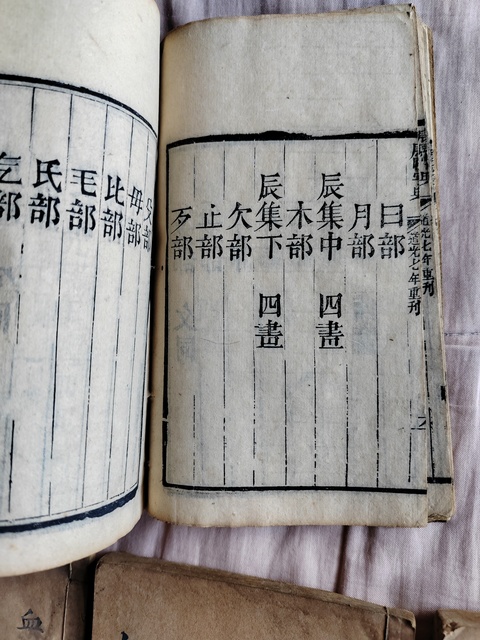 道光七年重刊
道光七年重刊
曰部
月部
辰集中 四畫
木部
辰集下 四畫
欠部
止部
歹部
殳部
毋部
比部
毛部
氏部
气部
血